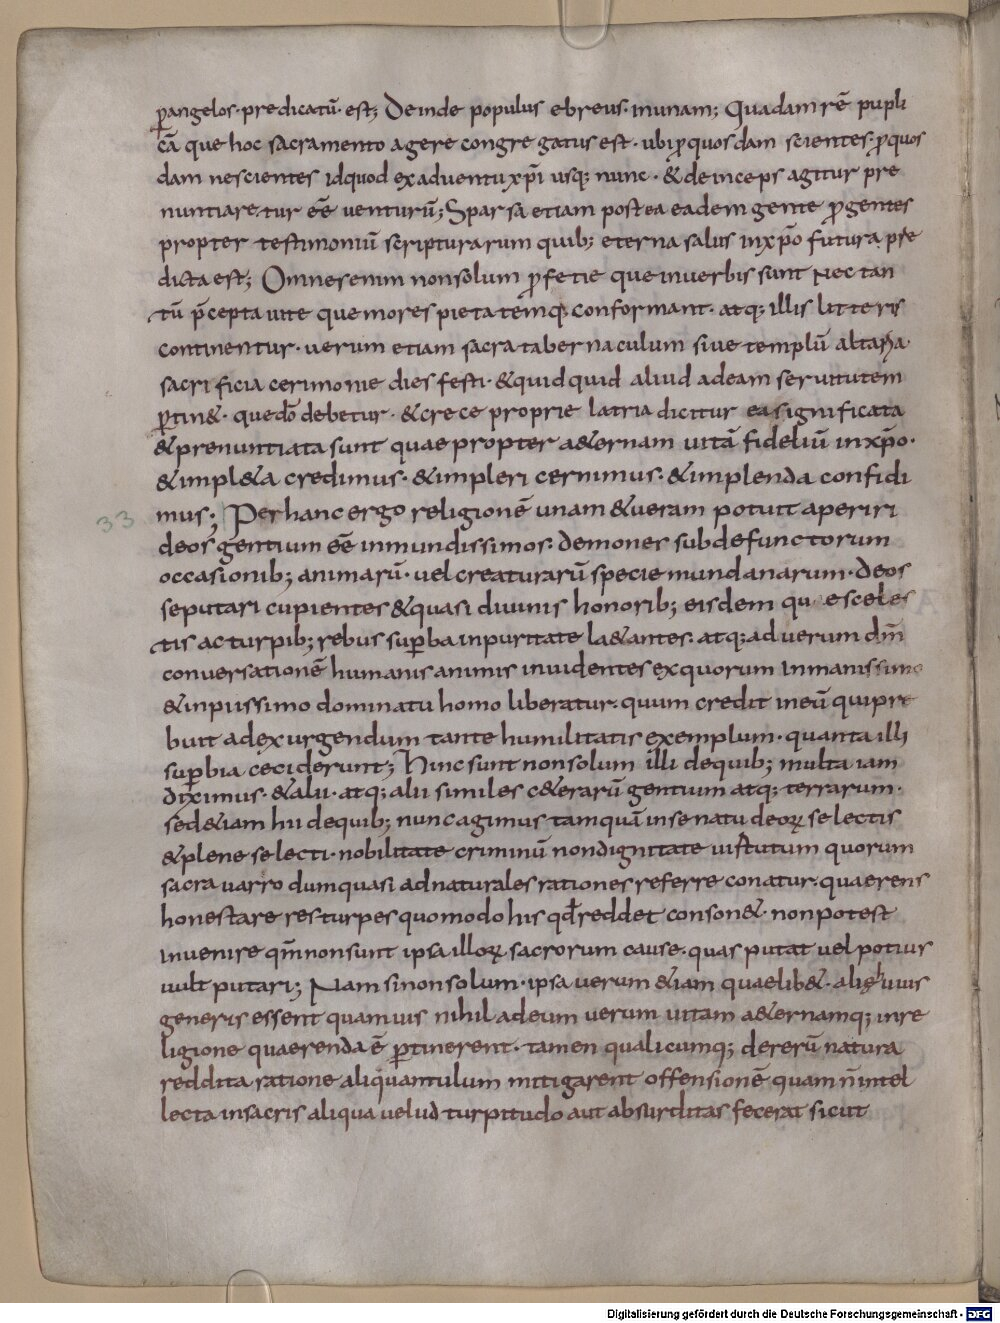 ꝑangelos · predicatū · est; Deinde populus ebreus · inunam; Quadam rē pupli
cā que hoc sacramento agere congregatus est · ubi ꝑquosdam scientes · ꝑquos
dam nescientes idquod exaduentu xp̄i usq; nunc · & deinceps agitur pre
nuntiaretur eē̄ uenturū; Sparsa etiam postea eadem gente ꝑ gentes
propter testimoniū scripturarum quib; eterna salus inxp̄o futura pre
dicta est; Omnes enim non solum ꝓfetie que inuerbis sunt Nec tan
tū p̄cepta uite que mores pietatemq; conformant · atq; illis litteris
continentur · uerum etiam sacra tabernaculum siue templū altaria ·
sacrificia cerimonie dies festi · & quidquid aliud adeam seruitutem
ꝑtin& · que dō debetur · & crece proprie latria dicitur ea significata
& prenuntiata sunt quae propter a&ernam uitā fideliū inxp̄o ·
& impl&a credimus · & impleri cernimus · & implenda confidi
mus; Per hanc ergo religionē unam & ueram potuit aperiri
33
deos gentium eē̄ inmundissimos · demones sub defunctorum
occasionib; animarū · uel creaturarū specie mundanarum · deos
se putari cupientes & quasi diuinis honorib; eisdemque sceles
tis ac turpib; rebus suꝑba inpuritate la&antes · atq; aduerum dm̄
conuersationē humanis animis inuidentes ex quorum inmanissimo
& inpiissimo dominatu homo liberatur · quum credit ineū qui pre
buit adexurgendum tante humilitatis exemplum · quanta illi
suꝑbia ceciderunt; Hinc sunt non solum illi de quib; multa iam
diximus · & alii · atq; alii similes c&erarū gentium atq; terrarum ·
sed&iam hii de quib; nunc agimus tamquā insenatu deoꝝ selectis
& plene selecti · nobilitate criminū non dignitate uirtutum quorum
sacra uarro dum quasi ad naturales rationes referre conatur · quaerens
honestare res turpes quomodo his qd̄ reddet conson& · non potest
inuenire qm̄ non sunt ipsa illoꝝ sacrorum cause · quas putat uel potius
uult putari; Nam si non solum · ipsa uerum &iam quaelib& · alię huius
generis essent quamuis nihil adeum uerum uitam a&ernamq; inre
ligione quaerenda ē ꝑtinerent · tamen qualicumq; dererū natura
reddita ratione aliquantulum mitigarent offensionē quam n̄ intel
lecta insacris aliqua uelud turpitudo aut absurditas fecerat sicut
Digitalisierung gefördert durch die Deutsche Forschungsgemeinschaft - DFG